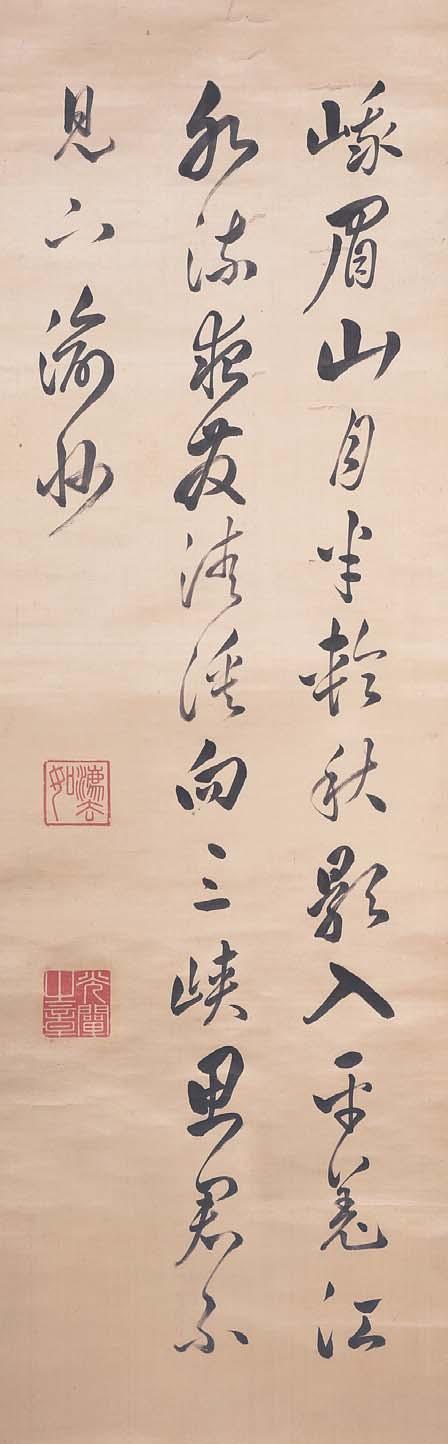 峨眉山月半輪秋影入平羌江
水流夜發清溪向三峽思君不
見下渝州